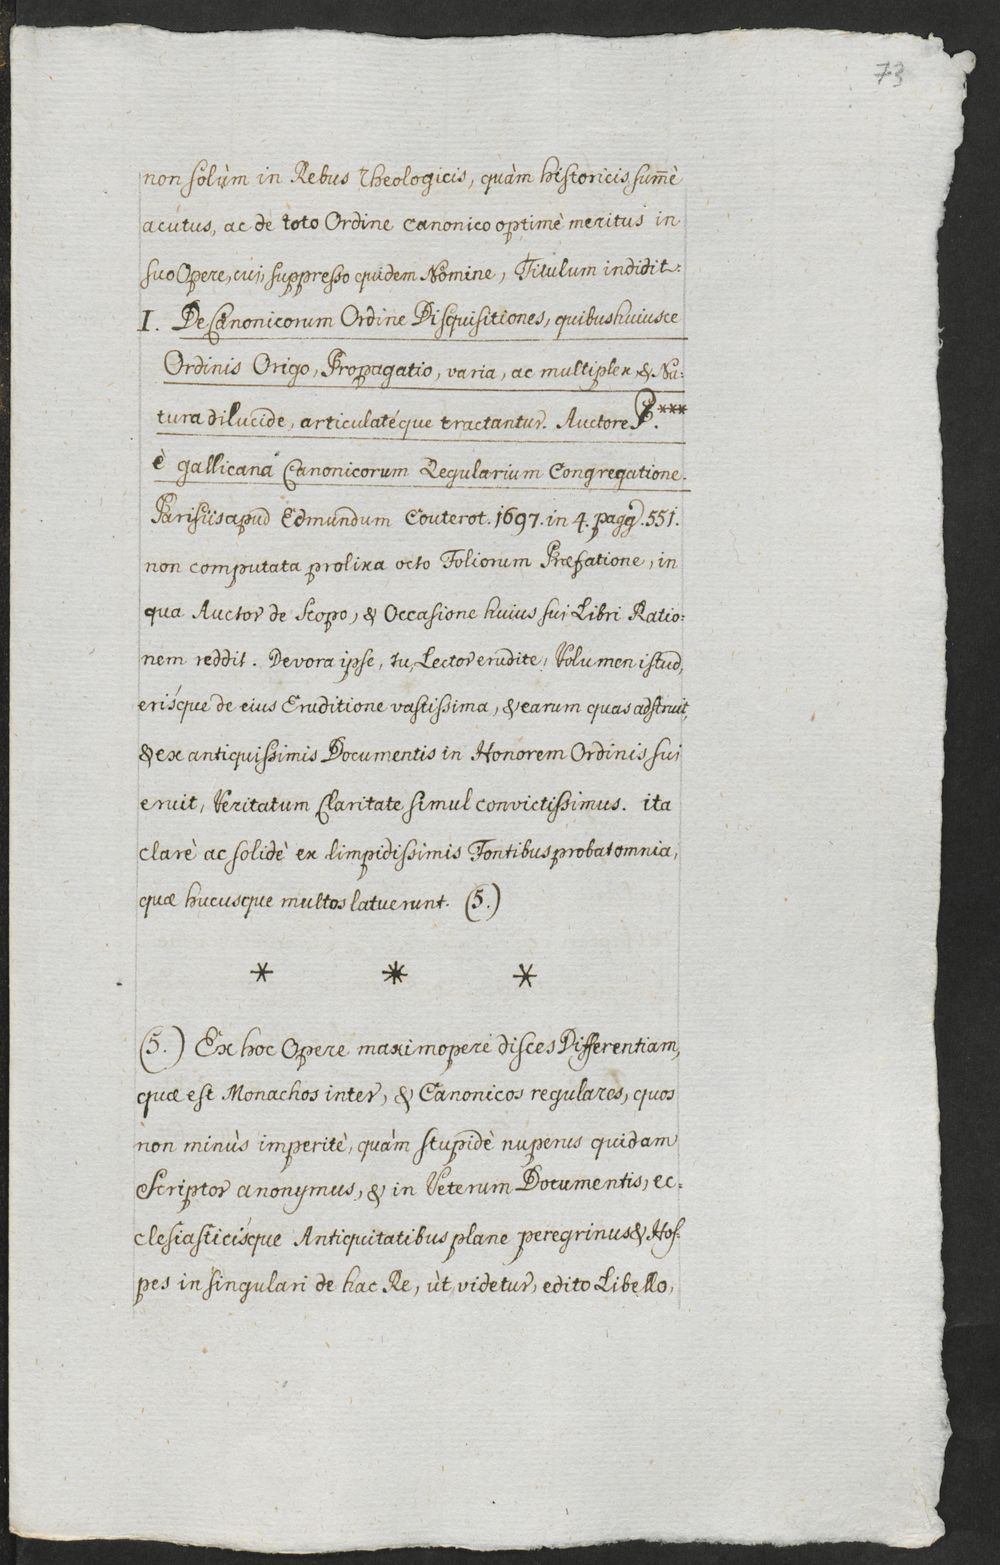 73
non solùm in Rebus Theologicis, quàm historicis sum̄è
acutus, ac de toto Ordine canonico optimè meritus in
suo Opere, cui, suppresso quidem Nomine, Titulum indidit.
I. De Canonicorum Ordine Disquisitiones, quibus huiusce
Ordinis Origo, Propagatio, varia, ac multiplex, & Na:
tura dilucide, articulatéque tractantur. Auctore P.***
è gallicana Canonicorum Regularium Congregatione.
Parisiis apud Edmundum Couterot. 1697. in 4. pagg. 551.
non computata prolixa octo Foliorum Præfatione, in
qua Auctor de Scopo, & Occasione huius sui Libri Ratio:
nem reddit. Devora ipse, tu, Lector erudite, Volumen istud,
erisque de eius Eruditione vastissima, & earum quas adstruit,
& ex antiquissimis Documentis in Honorem Ordinis sui
eruit, Veritatum Claritate simul convictissimus. ita
clarè ac solidè ex limpidissimis Fontibus probat omnia,
quæ hucusque multos latuerunt. (5.)
* * *
(5.) Ex hoc Opere maximopere disces Differentiam,
quæ est Monachos inter, & Canonicos regulares, quos
non minùs imperitè, quàm stupidè nuperus quidam
Scriptor anonymus, & in Veterum Documentis, ec:
clesiasticisque Antiquitatibus plane peregrinus & Hos:
pes in singulari de hac Re, ùt videtur, edito Libello,